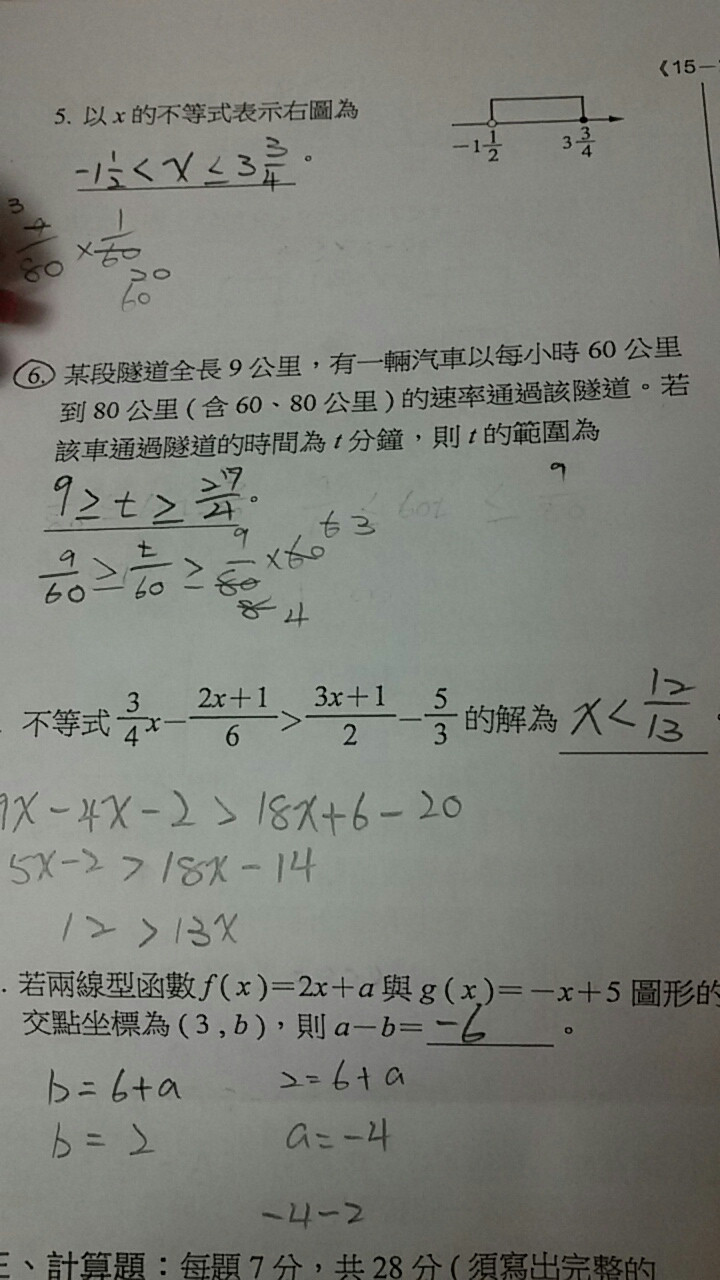 《15－
5. 以 x 的不等式表示右圖為
-1 1/2 3 3/4
-1 1/2 < x ≤ 3 3/4 。
3
/80 × 1/60
20
60
6. 某段隧道全長 9 公里，有一輛汽車以每小時 60 公里
到 80 公里 ( 含 60、80 公里 ) 的速率通過該隧道。若
該車通過隧道的時間為 t 分鐘，則 t 的範圍為
9 ≥ t ≥ 27/4 。
9
9/60 ≥ t/60 ≥ 9/80 × 60 6 3
8 4
不等式 3/4 x − (2x+1)/6 > (3x+1)/2 − 5/3 的解為 x < 12/13
9x - 4x - 2 > 18x + 6 - 20
5x - 2 > 18x - 14
12 > 13x
. 若兩線型函數 f ( x )=2x+a 與 g ( x )=−x+5 圖形的
交點坐標為 ( 3 , b )，則 a−b= -6 。
b = 6+a 2 = 6+a
b = 2 a = -4
-4-2
三、計算題：每題 7 分，共 28 分 ( 須寫出完整的